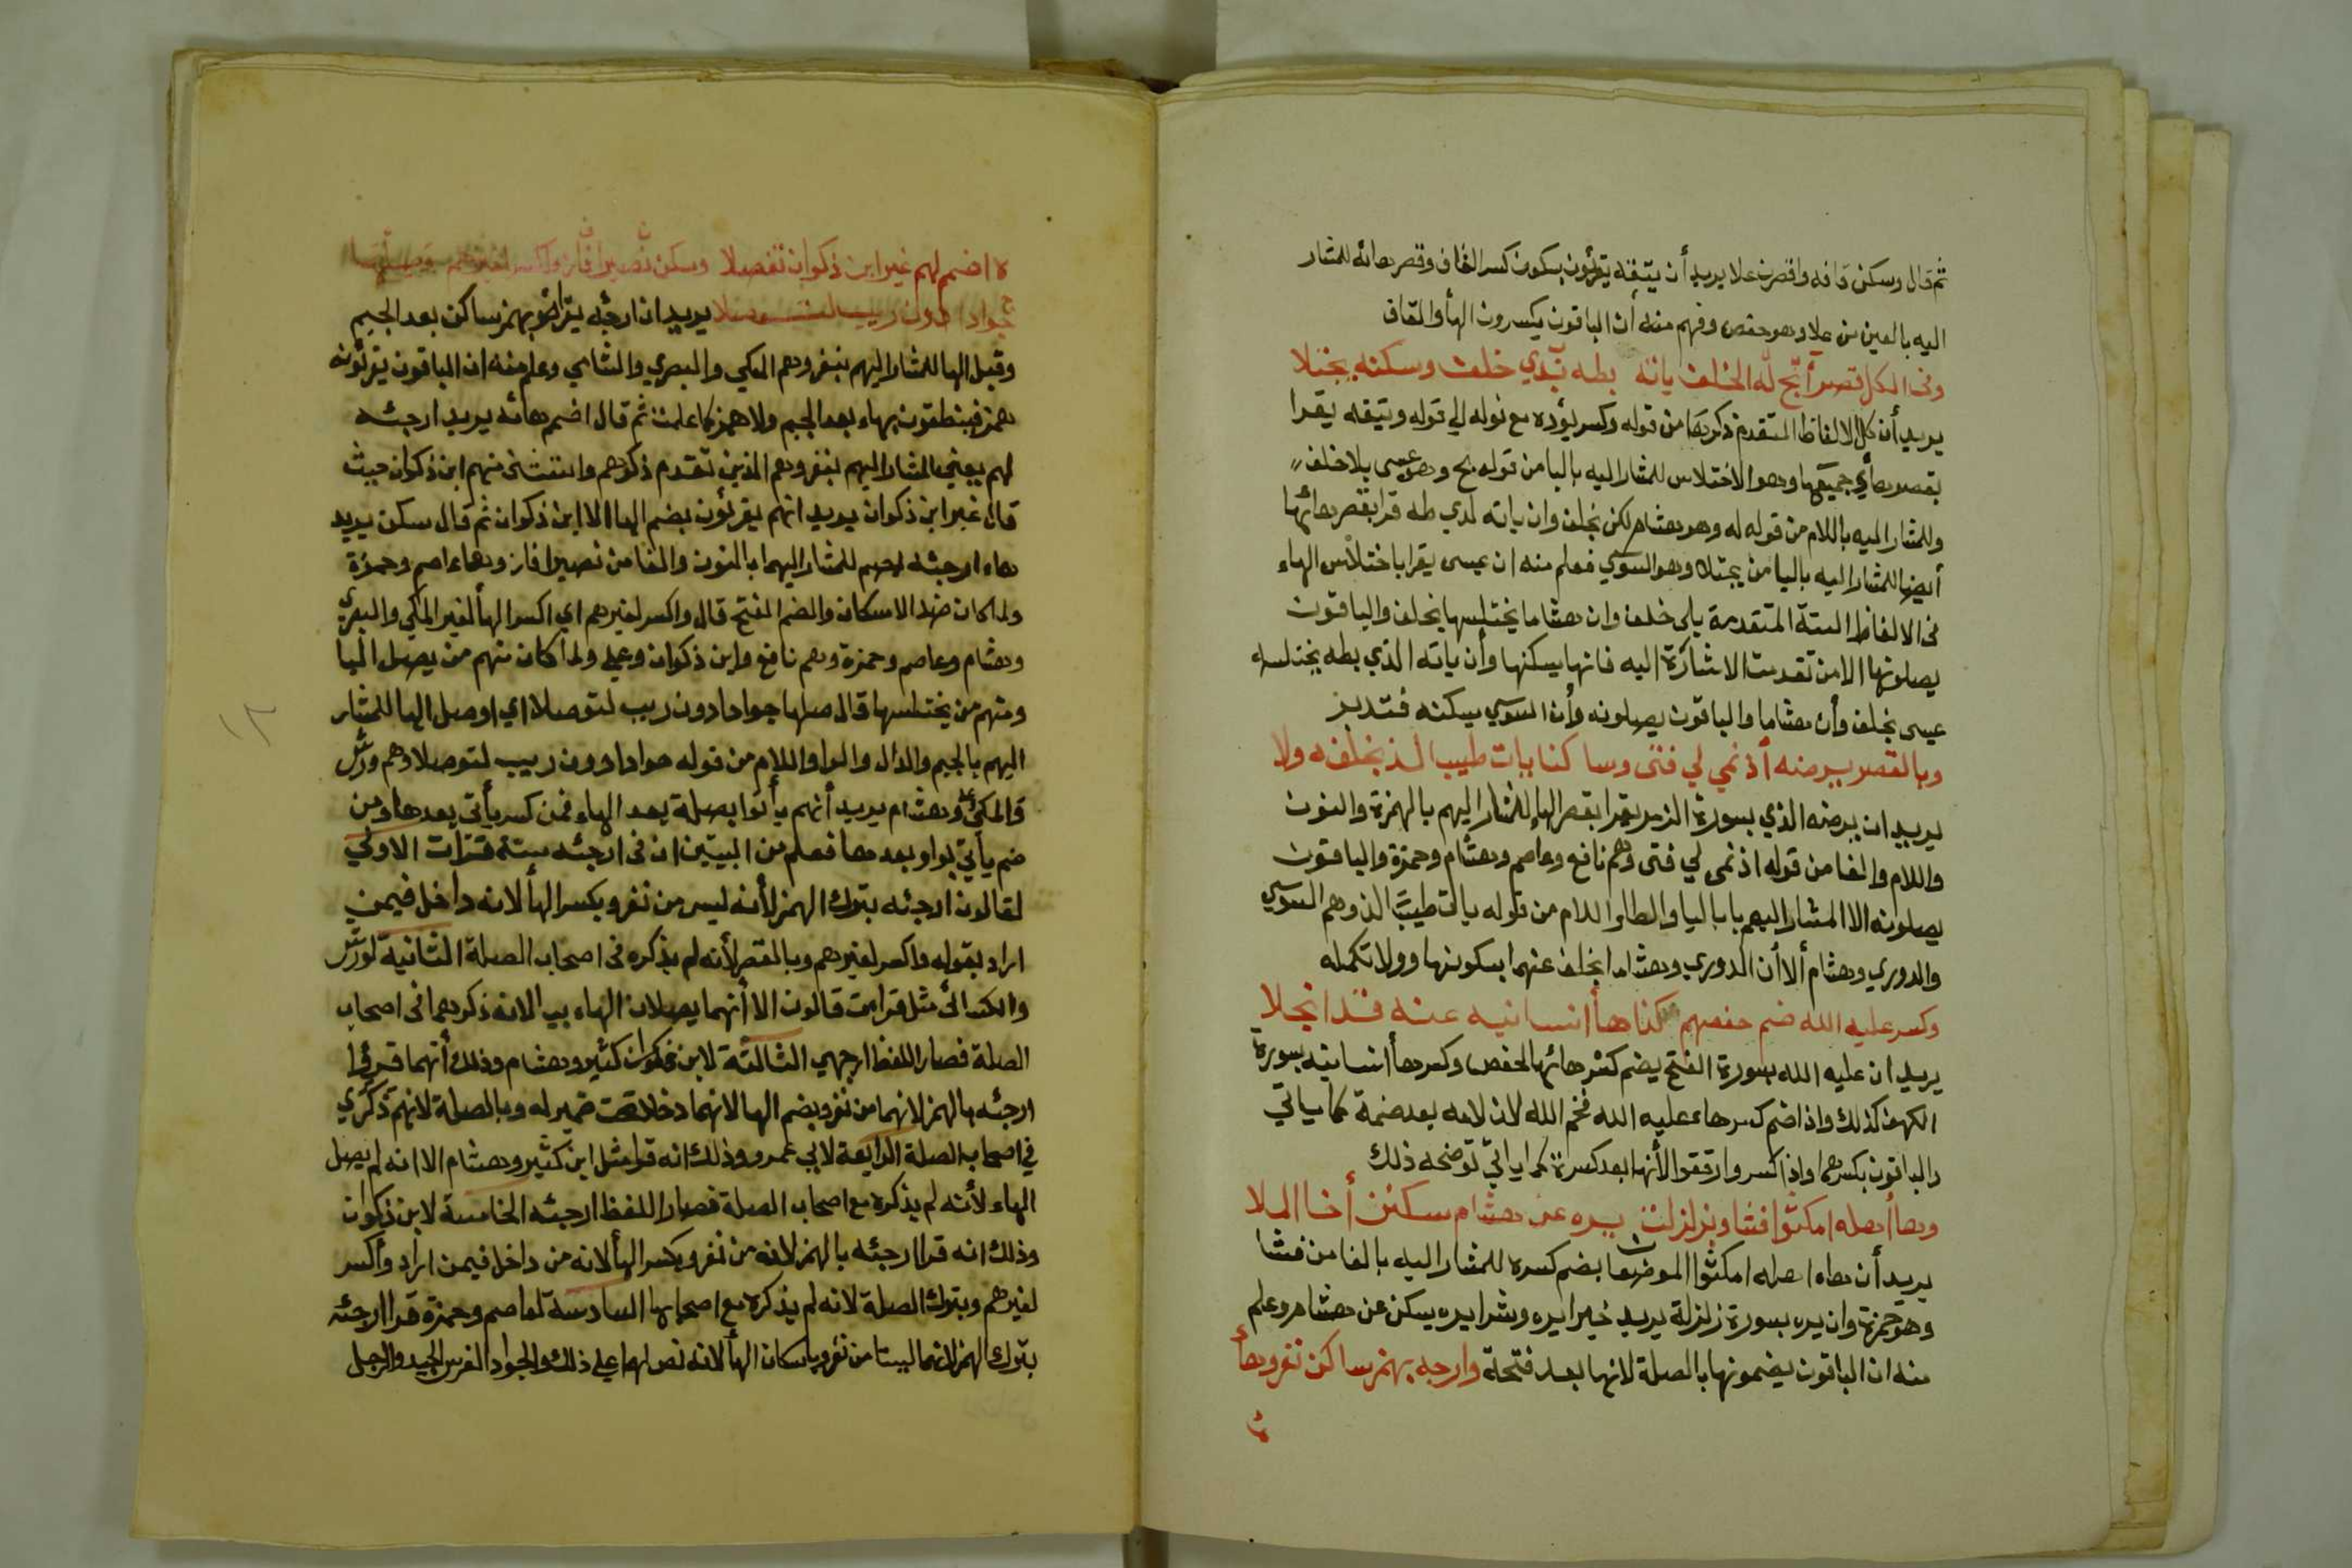 ثم قال وسكن قافه واقصرن علا يريد أن يتقه يقرئون بسكون كسر القاف وقصر هائه للمشار
اليه بالعين من علا وهو حفص وفهم منه أن الباقون يكسرون الهأ والقاف
وفى الكل قصرا بح له الخلف ياته بطه لدي خلف وسكنه يجتلا
يريد أن كل الالفاظ المتقدم ذكرها من قوله وكسر يؤده مع نوله الي قوله ويتقه يقرا
بقصر هاي جميعها وهو الاختلاس للمشار اليه بالبا من قوله بح وهو عيسى بلا خلف
وللمشار اليه باللام من قوله له وهو هشام لكن بخلف وان ياته لدي طه قرا بقصر هائها
أيضا للمشار اليه باليا من يجتلا وهو السوسي فعلم منه ان عيسى يقرا باختلاس الهاء
فى الالفاظ الستة المتقدمة بلى خلف وان هشاما يختلسها بخلف والباقون
يصلونها الا من تقدمت الاشارة اليه فانها يسكنها وأن ياته الذي بطه يختلسه
عيسى بخلف وأن هشاما والباقون يصلونه وأن السوسي يسكنه فتدبر
وبالقصر يرضه أذ نمي لي فتى وسا كنا بات طيب الذ بخلفه ولا
يريد ان يرضه الذي بسورة الزمر يقرا بقصر الهاء للمشار اليهم بالهمزة والنون
واللام والفا من قوله اذ نمى لي فتى وهم نافع وعاصم وهشام وحمزة والباقون
يصلونه الا المشار اليهم بابا ليا والطا واللام من قوله بات طيب الذ وهم السوسي
والدوري وهشام ألا أن الدوري وهشاما بخلف عنهما بسكونها وولا تكمله
وكسر عليه الله ضم حفصهم كذا ها أنسانيه عنه قد انجلا
يريد ان عليه الله بسورة الفتح يضم كسر هائها لحفص وكسر هاأ انسانيه بسورة
الكهف كذلك واذا ضم كسر هاء عليه الله فخم الله لان لامه بعد ضمة كما ياتي
والباقون بكسرهما واذا كسروا رققوا لأنها بعد كسرة كما ياتي توضحه ذلك
وهاأ اهله امكثوا فشا وبزلزلت يره عن هشام سكنن أخا الملا
يريد أن هاه اهله امكثوا الموضعان بضم كسره للمشار اليه بالفا من فشا
وهو حمزة وان يره بسورة زلزلة يريد خيرا يره وشرا يره يسكن عن هشام وعلم
منه ان الباقون يضمونها بالصلة لانها بعد فتحة وارجه بهمز ساكن نفر وهاأ
ه اضم لهم غير ابن ذكوان تفصلا وسكن نصيرا فاز واكسر لغيرهم وصلها
جوادا دون ريب لتوصلا يريد ان ارجئه يقرائو بهمز ساكن بعد الجيم
وقبل الها للمشار اليهم بنفر وهم المكي والبصري والشامي وعلم منه ان الباقون يقرئونه
بهمز فينطقون بهاء بعد الجيم ولا همز كما علمت ثم قال اضم هائه يريد ارجئه
لهم يعني المشار اليهم بنفر وهم الذين تقدم ذكرهم واستثنى منهم ابن ذكوان حيث
قال غير ابن ذكوان يريد انهم يقرئون بضم الها الا ابن ذكوان ثم قال سكن يريد
هاء ارجئه لهم للمشار اليهما بالنون والفا من نصيرا فاز وهما عاصم وحمزة
ولما كان ضد الاسكان والضم الفتح قال واكسر لغيرهم اي اكسر الهأ لغير المكي والبصري
وهشام وعاصم وحمزة وهم نافع وابن ذكوان وعلي ولما كان منهم من يصل اليا
ومنهم من يختلسها قال صلها جوادا دون ريب لتوصلا اي اوصل الها للمشار
اليهم بالجيم والدال والرا واللام من قوله جوادا دون ريب لتوصلا وهم ورش
والمكي وعلي وهشام يريد أنهم يأتوا بصلة بعد الهاء فمن كسر يأتي بعدها ومن
ضم ياتي بواو بعدها فعلم من البيتين ان فى ارجئه ستة قرات الاولي
لقالون ارجئه بترك الهمز لأنه ليس من نفر وبكسر الهأ لانه داخل فيمن
اراد بقوله واكسر لغيرهم وبالقصر لأنه لم يذكره فى اصحاب الصلة الثانية لورش
والكسائي مثل قراءت قالون الا أنهما يصلان الهاء بيا لانه ذكرهما فى اصحاب
الصلة فصار اللفظ ارجهي الثالثة لابن كثير وهشام وذلك أنهما قرؤا
ارجئه بالهمز لانهما من نفر وبضم الها لانهما دخلا تحت ضمير له وبالصلة لانهم ذكري
في اصحاب الصلة الرابعة لابي عمرو وذلك انه قرا مثل ابن كثير وهشام الا انه لم يصل
الهاء لأنه لم يذكره مع اصحاب الصلة فصار اللفظ ارجئه الخامسة لابن ذكوان
وذلك انه قرا ارجئه بالهمز لانه من نفر وبكسر الهأ لانه من داخل فيمن اراد واكسر
لغيرهم وبترك الصلة لانه لم يذكره مع اصحابها السادسة لعاصم وحمزة قرا ارجئه
بترك الهمز لانهما ليستا من نفر وباسكان الهأ لانه نص لهما علي ذلك والجواد الفرس الجيد والرجل